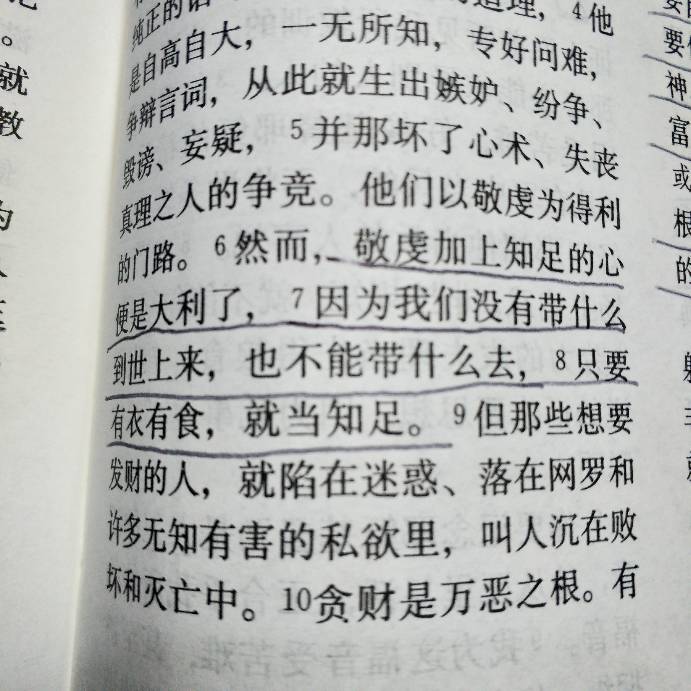 纯正的话
道理，4他
是自高自大，一无所知，专好问难，
争辩言词，从此就生出嫉妒、纷争、
毁谤、妄疑，5并那坏了心术、失丧
真理之人的争竞。他们以敬虔为得利
的门路。6然而，敬虔加上知足的心
便是大利了，7因为我们没有带什么
到世上来，也不能带什么去，8只要
有衣有食，就当知足。9但那些想要
发财的人，就陷在迷惑、落在网罗和
许多无知有害的私欲里，叫人沉在败
坏和灭亡中。10贪财是万恶之根。有
。
就
教
要
神
富
或
根
的